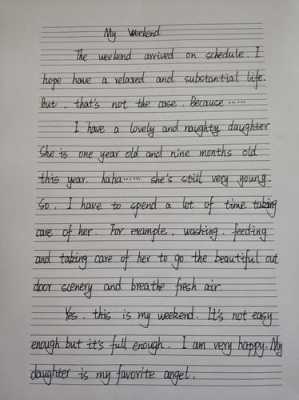 My Weekend
The weekend arrived on schedule. I
hope have a relaxed and substantial life.
But, that's not the case. Because ......
I have a lovely and naughty daughter
She is one year old and nine months old
this year. haha...... she's still very young.
So, I have to spend a lot of time taking
care of her. For example, washing, feeding
and taking care of her to go the beautiful out
door scenery and breathe fresh air
Yes, this is my weekend. It's not easy
enough but it's full enough. I am very happy. My
daughter is my favorite angel.